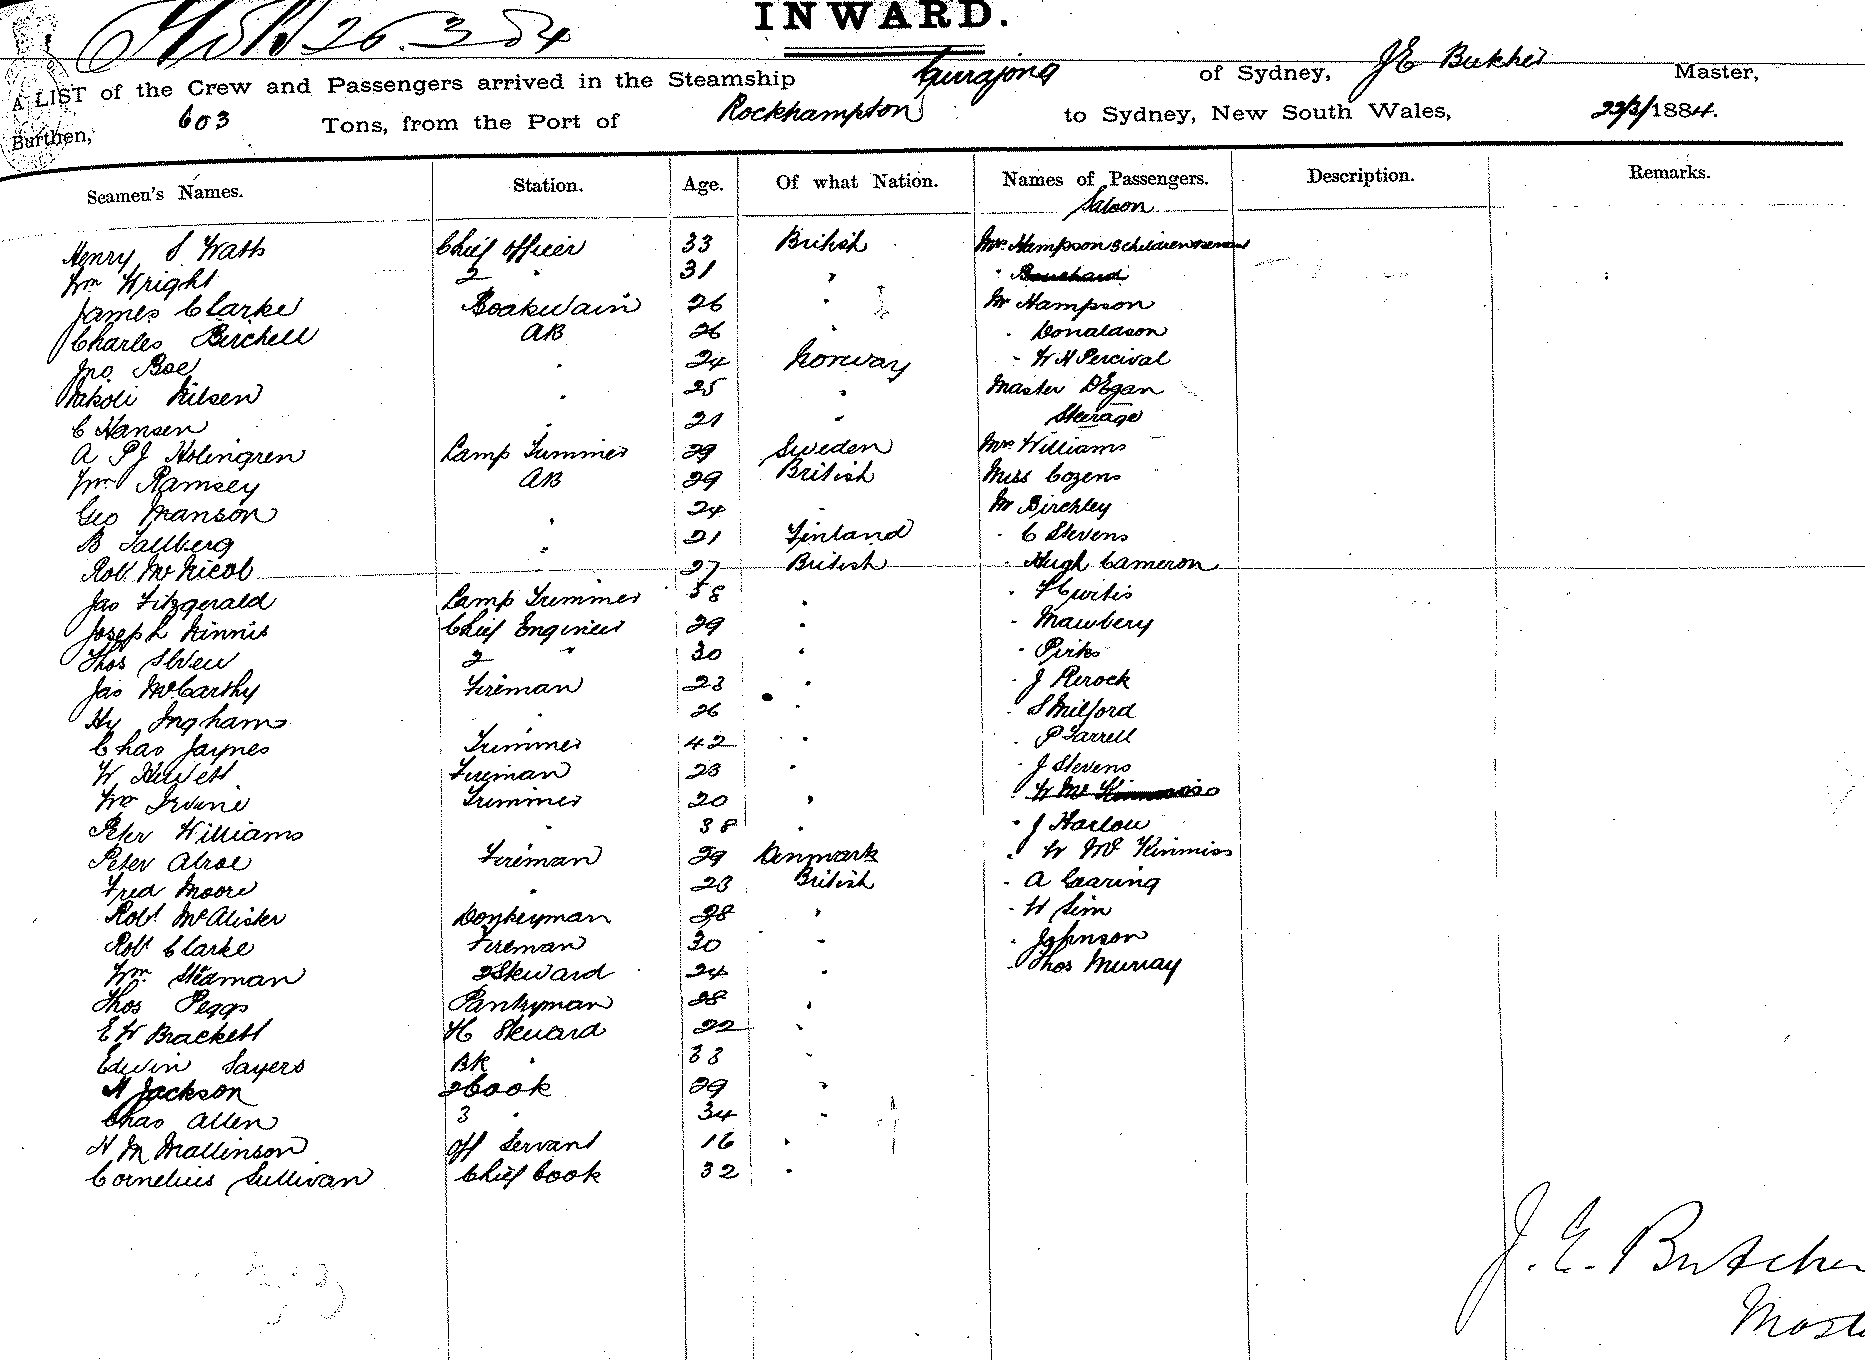 26.3.84
INWARD.
A LIST of the Crew and Passengers arrived in the Steamship Gurrajong of Sydney, J E Butcher Master,
Burthen, 603 Tons, from the Port of Rockhampton to Sydney, New South Wales, 22/3/1884.
Seamen's Names. Station. Age. Of what Nation. Names of Passengers. Description. Remarks.
Saloon
Henry S Watts Chief Officer 33 British Mrs Hampson 3 children & servant
Wm Wright 2 " 31 " " Bouchard
James Clarke Boatswain 26 " Mr Hampson
Charles Birchell AB 26 " " Donaldson
Jno Boe " 24 Norway " W H Percival
Nikoli Nilsen " 25 " Master D Egan
C Hansen " 21 " Steerage
A P J Holingren Lamp Trimmer 29 Sweden Mrs Williams
Wm Ramsey AB 29 British Miss Cozens
Geo Manson " 24 " Mr Birchley
B Sallberg " 21 Finland " C Stevens
Robt McNicol 27 British " Hugh Cameron
Jas Fitzgerald Lamp Trimmer 58 " " Curtis
Joseph Kinnis Chief Engineer 29 " " Mawbery
Thos 2 " 30 " " Pirks
Jas McCarthy Fireman 23 " " J
Hy Ingham " 26 " " S Milford
Chas Jaynes Trimmer 42 " " P Farrell
W Hewett Fireman 23 " " J Stevens
Wm Irvine Trimmer 20 " " W Mc
Peter Williams " 38 " " J Harlow
Peter Alroe Fireman 29 Denmark " W McKinniss
Fred Moore " 23 British " A Gearing
Robt McAlister Donkeyman 28 " " W Sim
Robt Clarke Fireman 30 " " Johnson
Wm Stedman 2 Steward 24 " " Thos Murray
Thos Peggs Pantryman 28 "
E W Brackett F C Steward 22 "
Edwin Sayers BK " 33 "
H Jackson 2 Cook 29 "
Chas Allen 3 " 34 "
H M Mallinson Off Servant 16 "
Cornelius Sullivan Chief Cook 32 "
J. E. Butcher